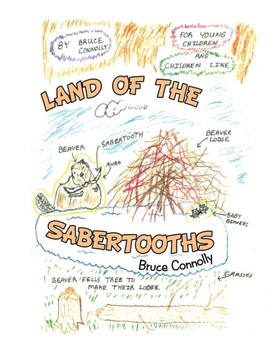 BY BRUCE
CONNOLLY
FOR YOUNG
CHILDREN
AND
CHILDREN LIKE
LAND OF THE
CLOUD
SABERTOOTH
BEAVER
BEAVER
LODGE
AURA
BABY
BEAVERS
SABERTOOTHS
Bruce Connolly
GRASSES
BEAVER FELLS TREE TO
MAKE THEIR LODGE